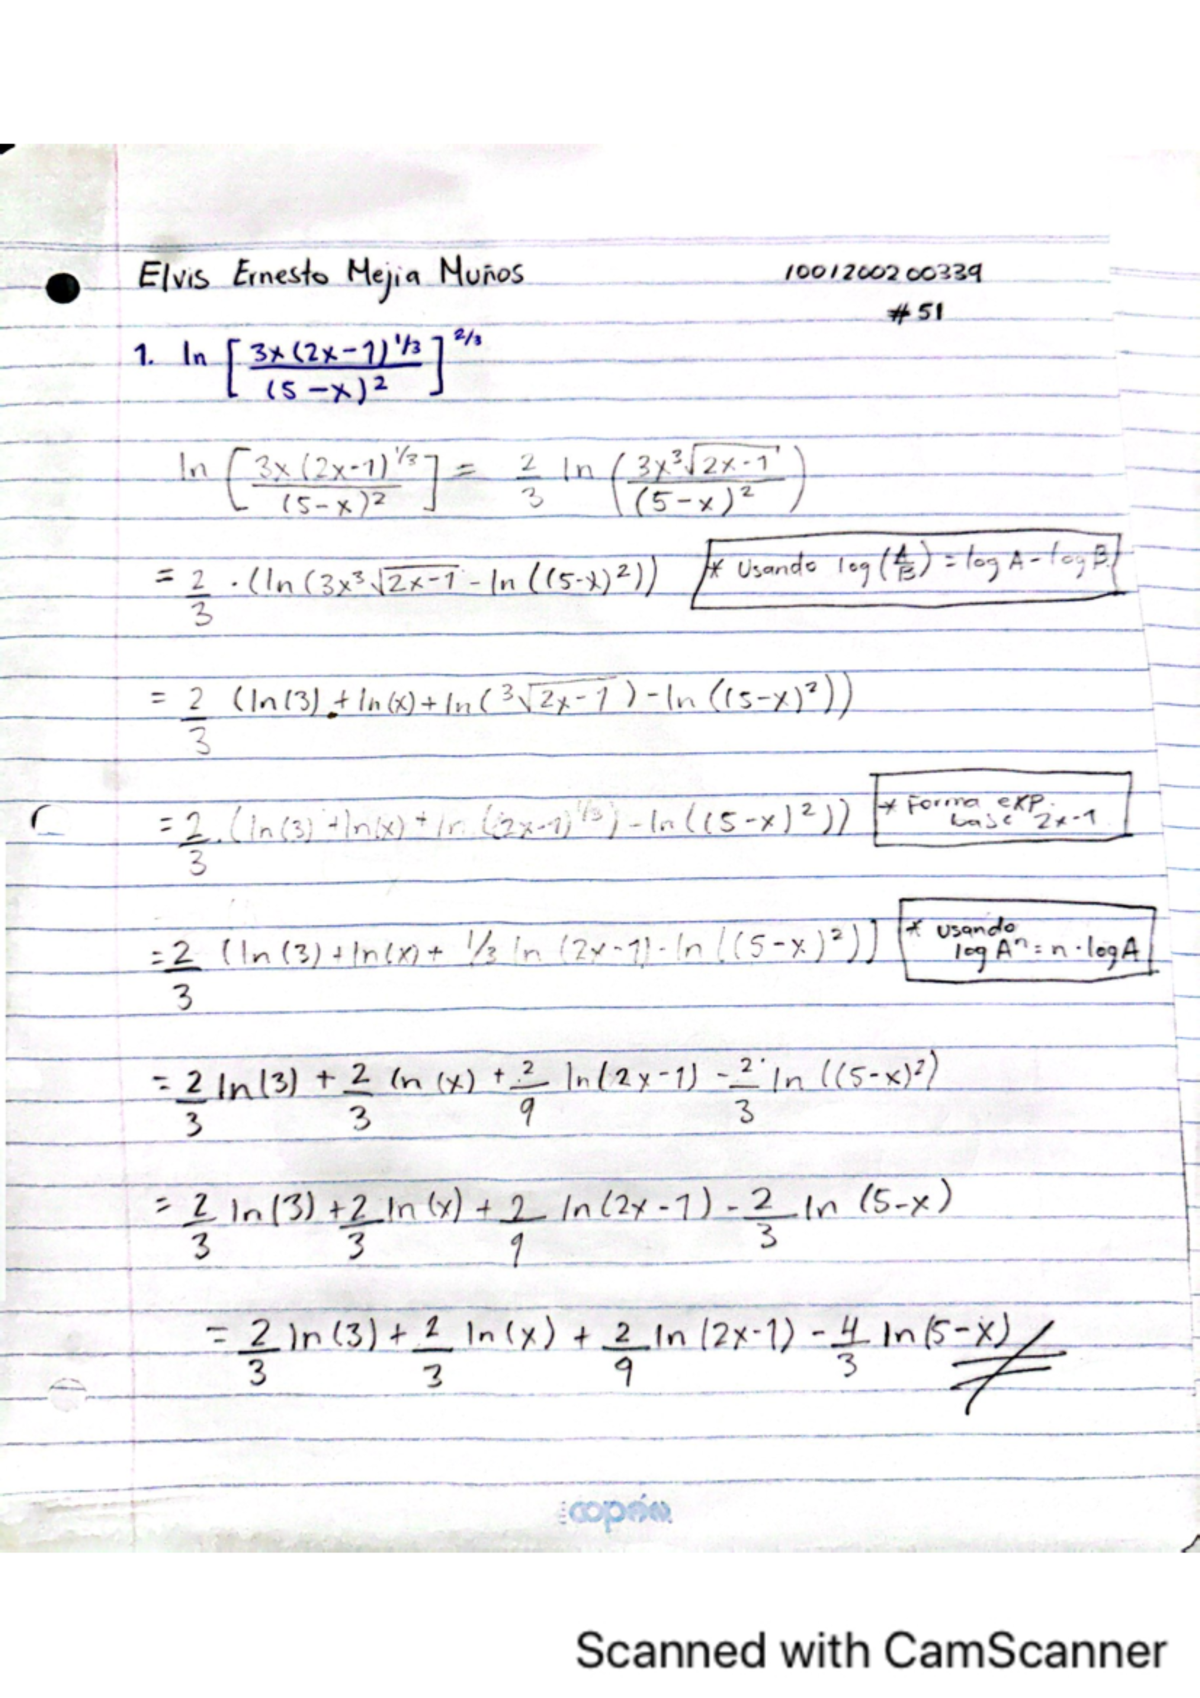 Elvis Ernesto Mejia Muños 1001200200339
#51
1. ln [3x(2x-1)^1/3 / (5-x)^2]^2/3
ln [3x(2x-1)^1/3 / (5-x)^2] = 2/3 ln (3x ³√2x-1 / (5-x)^2)
= 2/3 · (ln(3x ³√2x-1 - ln((5-x)^2)) * Usando log(A/B) = log A - log B
= 2/3 (ln(3) + ln(x) + ln(³√2x-1) - ln((5-x)^2))
= 2/3 · (ln(3) + ln(x) + ln((2x-1)^1/3) - ln((5-x)^2)) * Forma exp. base 2x-1
= 2/3 (ln(3) + ln(x) + 1/3 ln(2x-1) - ln((5-x)^2)) * usando log A^n = n · log A
= 2/3 ln(3) + 2/3 ln(x) + 2/9 ln(2x-1) - 2/3 ln((5-x)^2)
= 2/3 ln(3) + 2/3 ln(x) + 2/9 ln(2x-1) - 2/3 ln(5-x)
= 2/3 ln(3) + 2/3 ln(x) + 2/9 ln(2x-1) - 4/3 ln(5-x)
copán
Scanned with CamScanner